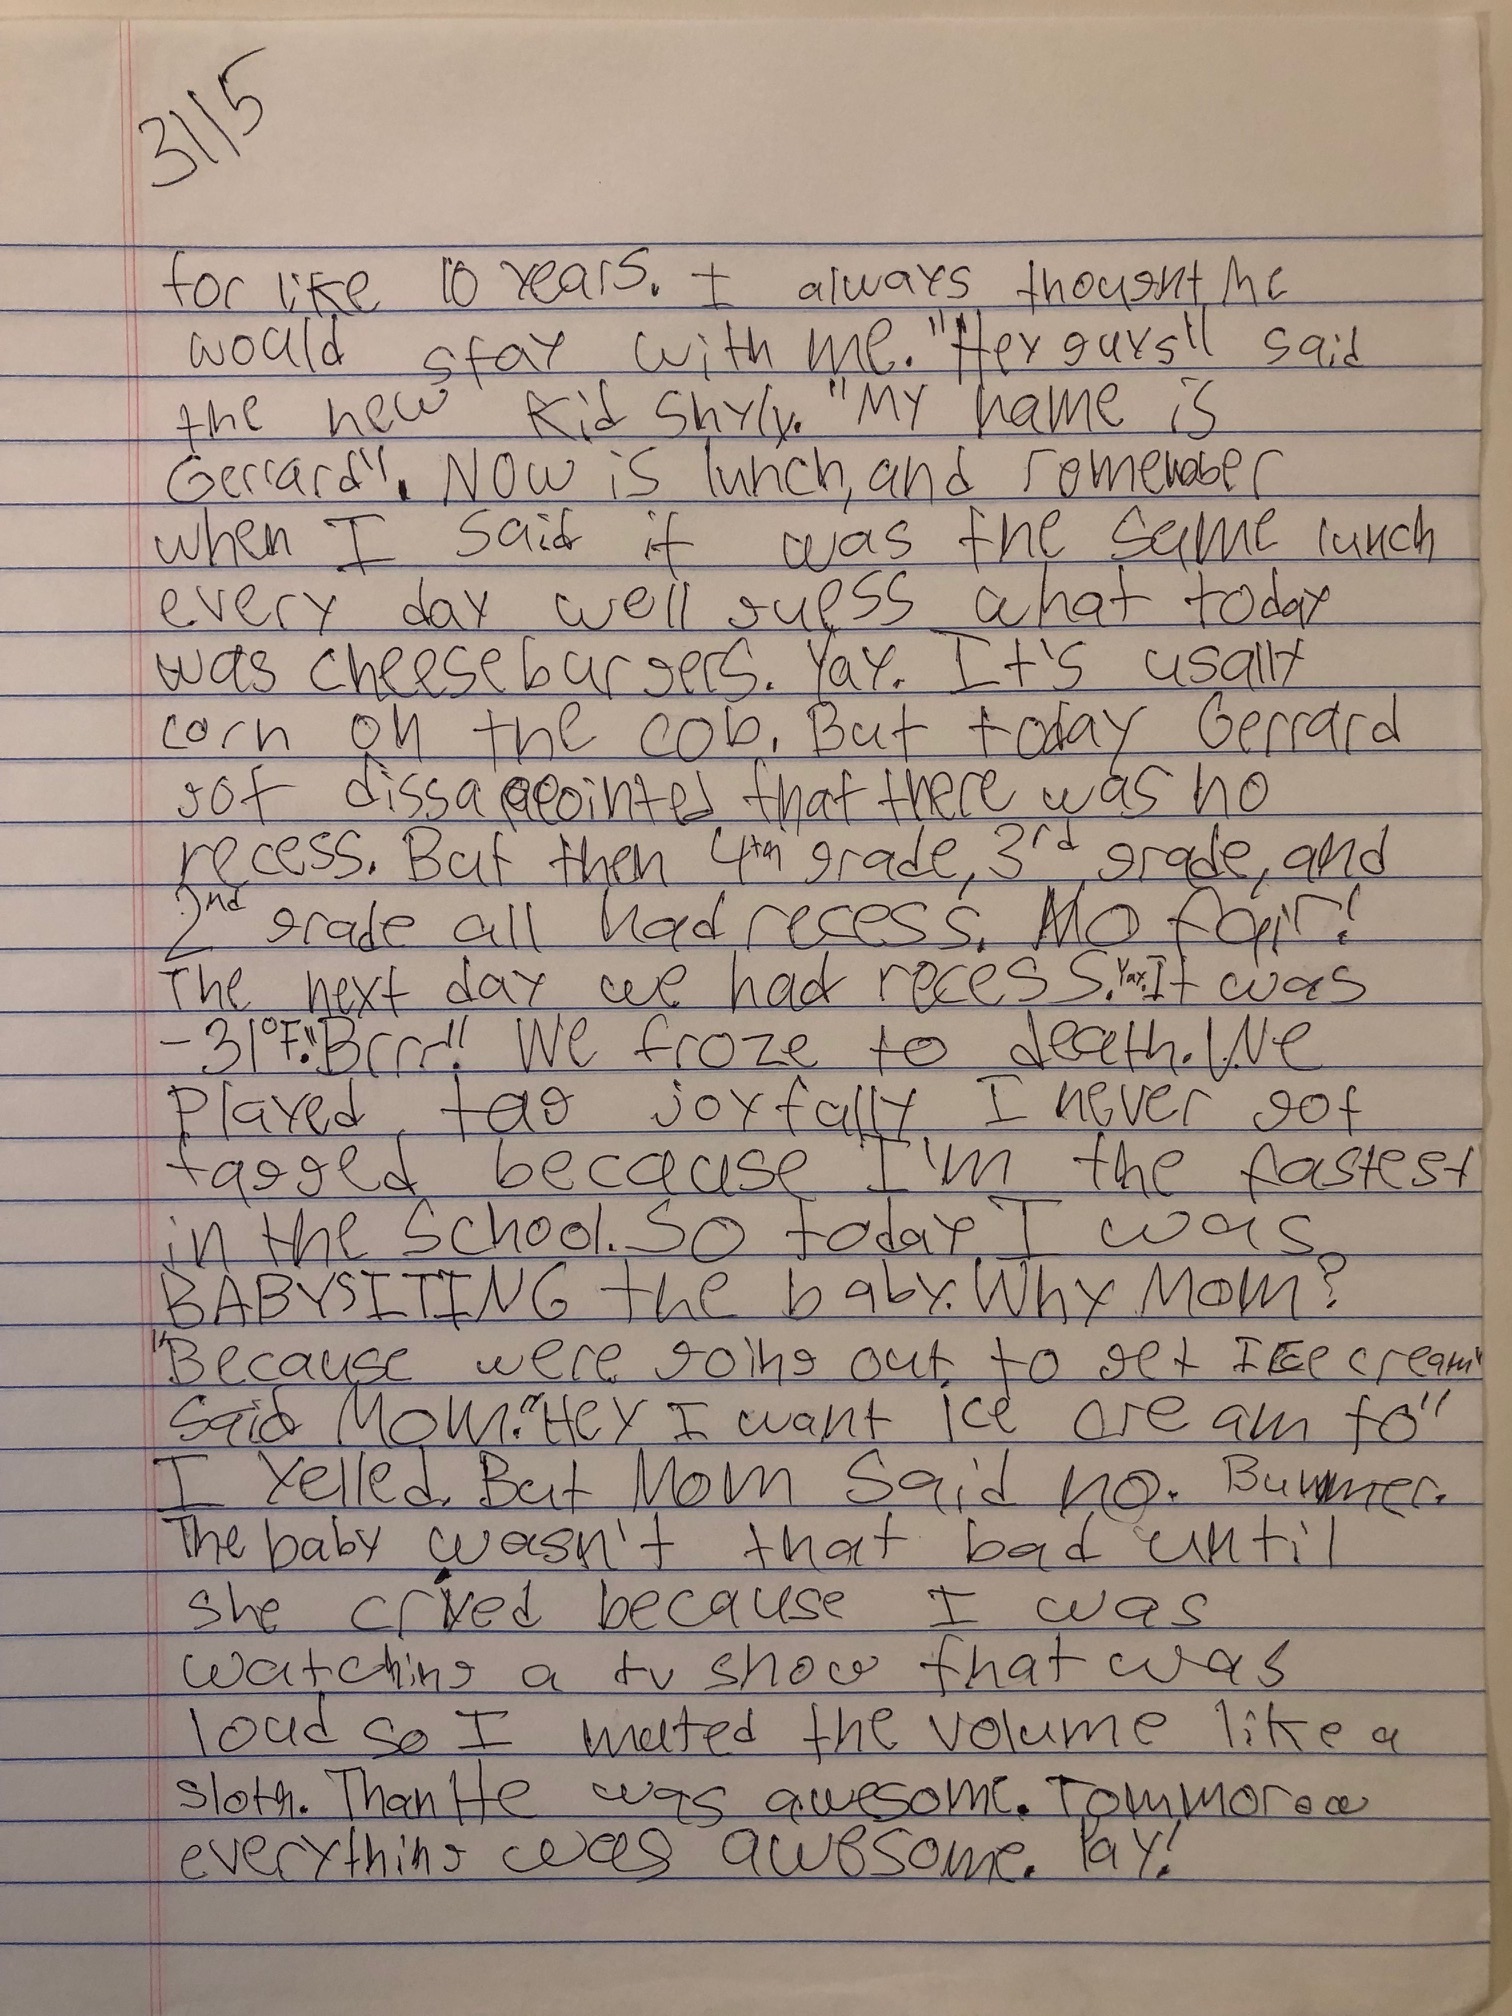 3/15
for like 10 years. I always thought he
would stay with me. "Hey guys" said
the new kid shyly. "My name is
Gerrard". Now is lunch, and remember
when I said it was the same lunch
every day well guess what today
was cheeseburgers. Yay. It's usally
corn on the cob. But today Gerrard
got dissappointed that there was no
recess. But then 4th grade, 3rd grade, and
2nd grade all had recess. No fair!
The next day we had recess. Yay. It was
-31°F. "Brrr"! We froze to death. We
played tag joyfully I never got
tagged because I'm the fastest
in the school. So today I was
BABYSITING the baby. Why Mom?
"Because were going out to get ICE cream"
said Mom. "Hey I want ice cream to"
I yelled. But Mom said no. Bummer.
The baby wasn't that bad until
she cried because I was
watching a tv show that was
loud so I muted the volume like a
sloth. Than He was awesome. Tommorow
everything was awesome. Yay!